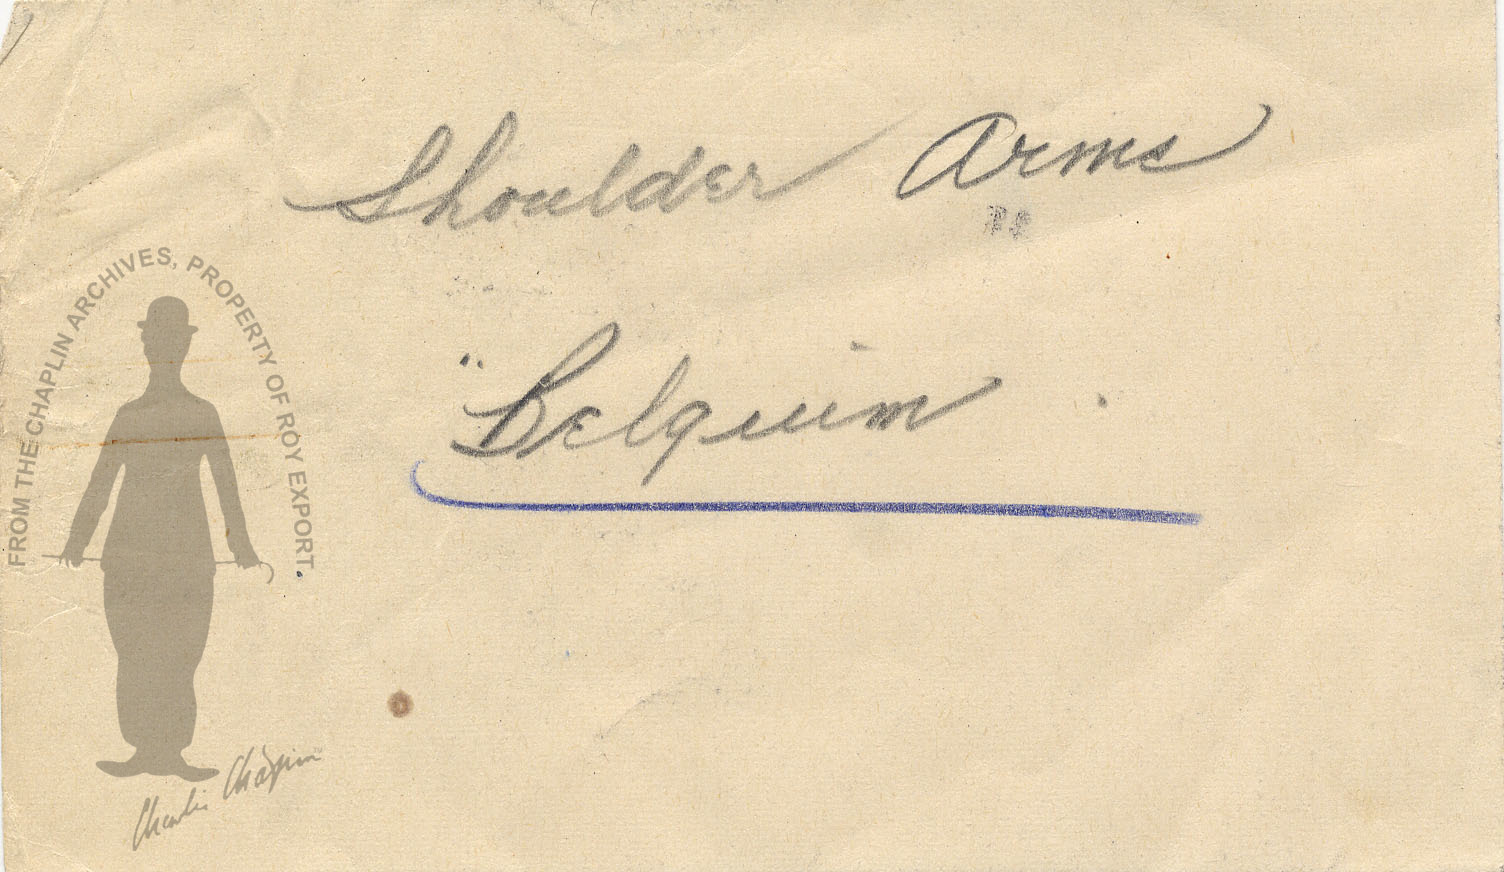 Shoulder Arms
"Belgium
FROM THE CHAPLIN ARCHIVES, PROPERTY OF ROY EXPORT.
Charlie Chaplin